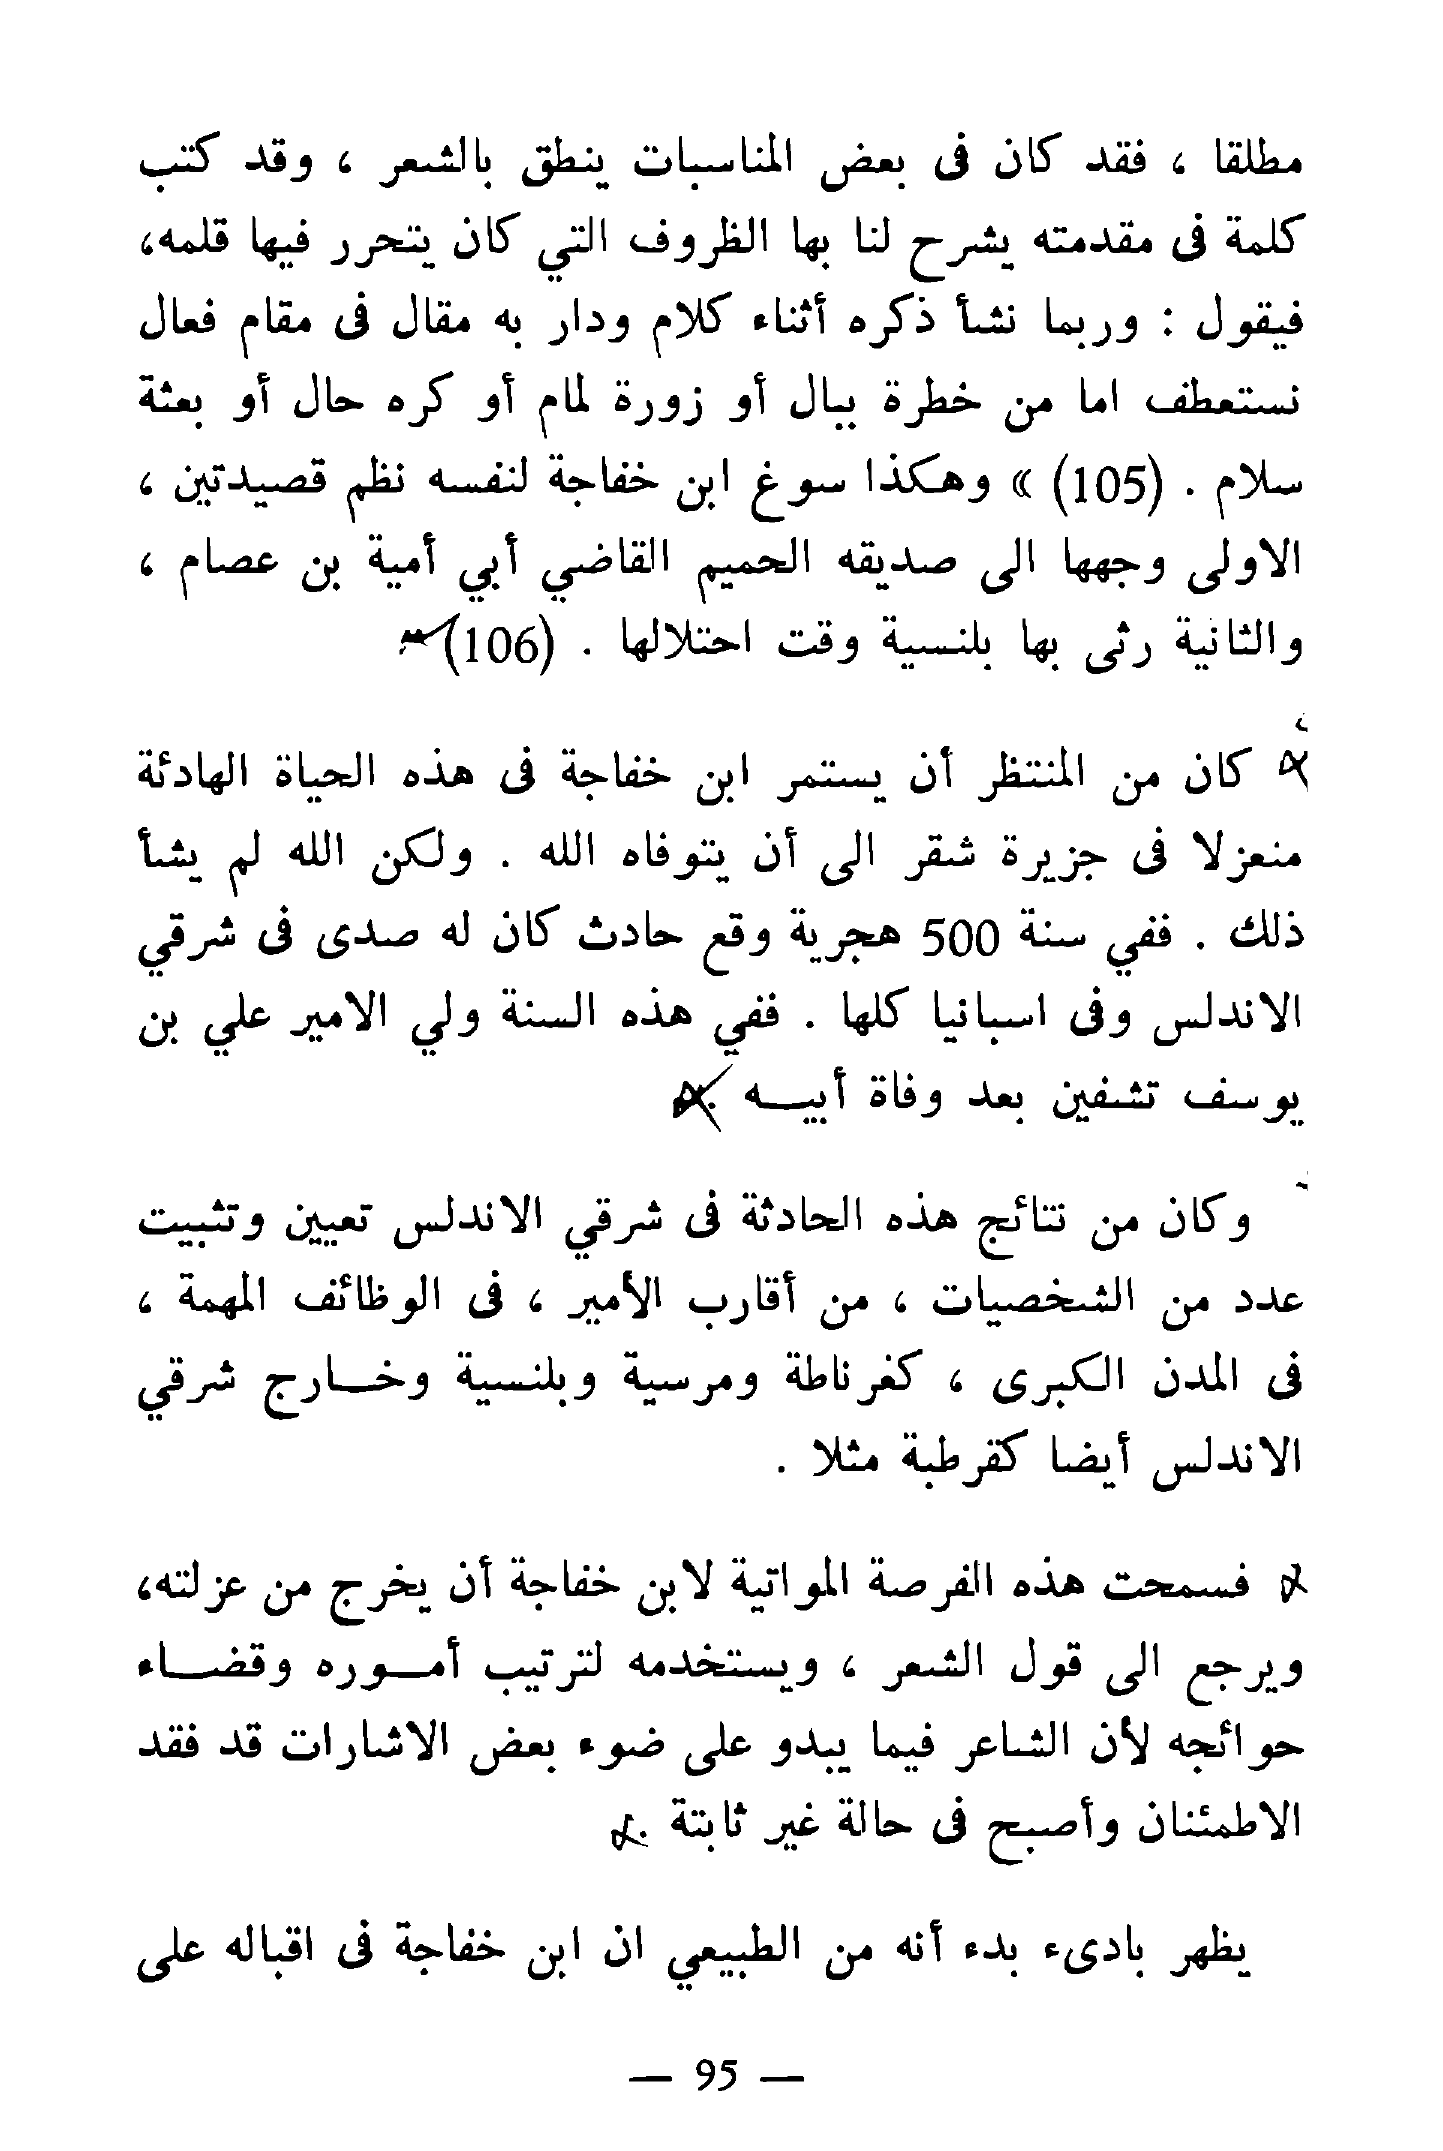 مطلقا ، فقد كان فى بعض المناسبات ينطق بالشعر ، وقد كتب
كلمة فى مقدمته يشرح لنا بها الظروف التي كان يتحرر فيها قلمه،
فيقول : وربما نشأ ذكره أثناء كلام ودار به مقال فى مقام فعال
نستعطف اما من خطرة ببال أو زورة لمام أو كره حال أو بعثة
سلام . (105) » وهكذا سوغ ابن خفاجة لنفسه نظم قصيدتين ،
الاولى وجهها الى صديقه الحميم القاضي أبي أمية بن عصام ،
والثانية رثى بها بلنسية وقت احتلالها . (106)
كان من المنتظر أن يستمر ابن خفاجة فى هذه الحياة الهادئة
منعزلا فى جزيرة شقر الى أن يتوفاه الله . ولكن الله لم يشأ
ذلك . ففي سنة 500 هجرية وقع حادث كان له صدى فى شرقي
الاندلس وفى اسبانيا كلها . ففي هذه السنة ولي الامير علي بن
يوسف تشفين بعد وفاة أبيــه .
وكان من نتائج هذه الحادثة فى شرقي الاندلس تعيين وتثبيت
عدد من الشخصيات ، من أقارب الأمير ، فى الوظائف المهمة ،
فى المدن الكبرى ، كغرناطة ومرسية وبلنسية وخــارج شرقي
الاندلس أيضا كقرطبة مثلا .
فسمحت هذه الفرصة المواتية لابن خفاجة أن يخرج من عزلته،
ويرجع الى قول الشعر ، ويستخدمه لترتيب أمــوره وقضــاء
حوائجه لأن الشاعر فيما يبدو على ضوء بعض الاشارات قد فقد
الاطمئنان وأصبح فى حالة غير ثابتة .
يظهر بادىء بدء أنه من الطبيعي ان ابن خفاجة فى اقباله على
— 95 —